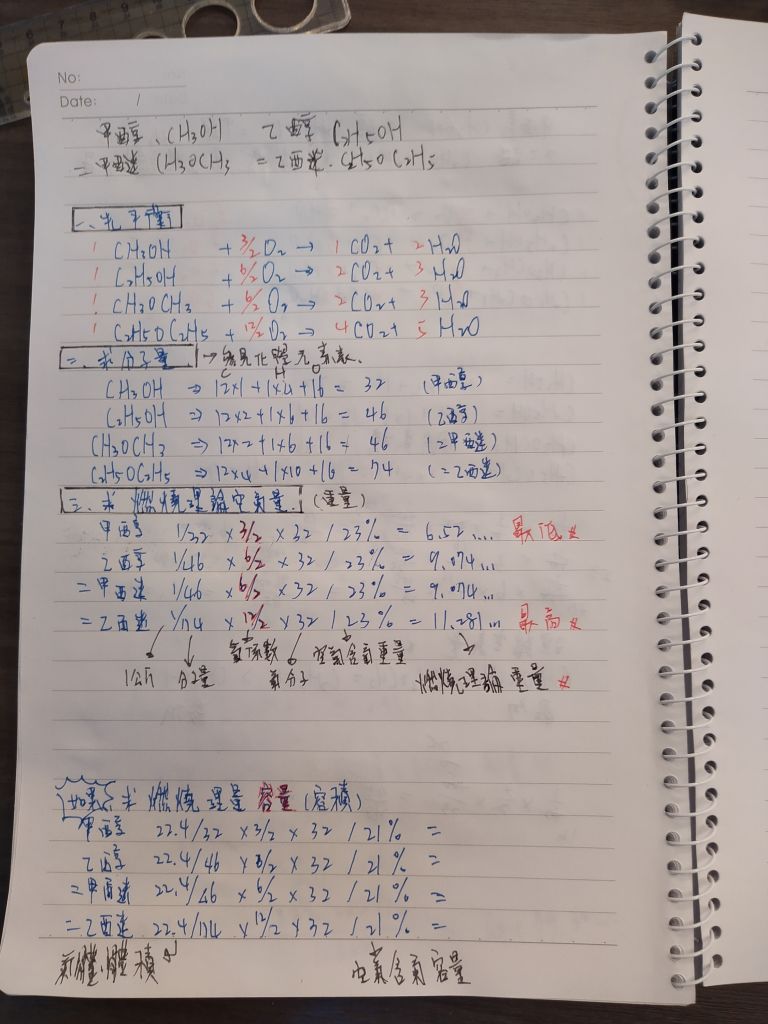 No:
Date: /
甲醇、CH3OH 乙醇 C2H5OH
二甲醚 CH3OCH3 二乙醚、C2H5OC2H5
一、先平衡
1 CH3OH + 3/2 O2 → 1 CO2 + 2 H2O
1 C2H5OH + 6/2 O2 → 2 CO2 + 3 H2O
1 CH3OCH3 + 6/2 O2 → 2 CO2 + 3 H2O
1 C2H5OC2H5 + 12/2 O2 → 4 CO2 + 5 H2O
二、求分子量 → 常見化學元素表.
C H O
CH3OH ⇒ 12×1+1×4+16 = 32 (甲醇)
C2H5OH ⇒ 12×2+1×6+16 = 46 (乙醇)
CH3OCH3 ⇒ 12×2+1×6+16 = 46 (二甲醚)
C2H5OC2H5 ⇒ 12×4+1×10+16 = 74 (二乙醚)
三、求燃燒理論空氣量. (重量)
甲醇 1/32 × 3/2 × 32 / 23% = 6.52... 最低
乙醇 1/46 × 6/2 × 32 / 23% = 9.074...
二甲醚 1/46 × 6/2 × 32 / 23% = 9.074...
二乙醚 1/74 × 12/2 × 32 / 23% = 11.281... 最高
1公斤 分子量 氧係數 氧分子 空氣含氧重量 燃燒理論重量
如果 求燃燒理量容量 (容積)
甲醇 22.4/32 × 3/2 × 32 / 21% =
乙醇 22.4/46 × 6/2 × 32 / 21% =
二甲醚 22.4/46 × 6/2 × 32 / 21% =
二乙醚 22.4/74 × 12/2 × 32 / 21% =
氣體、體積 空氣含氧容量